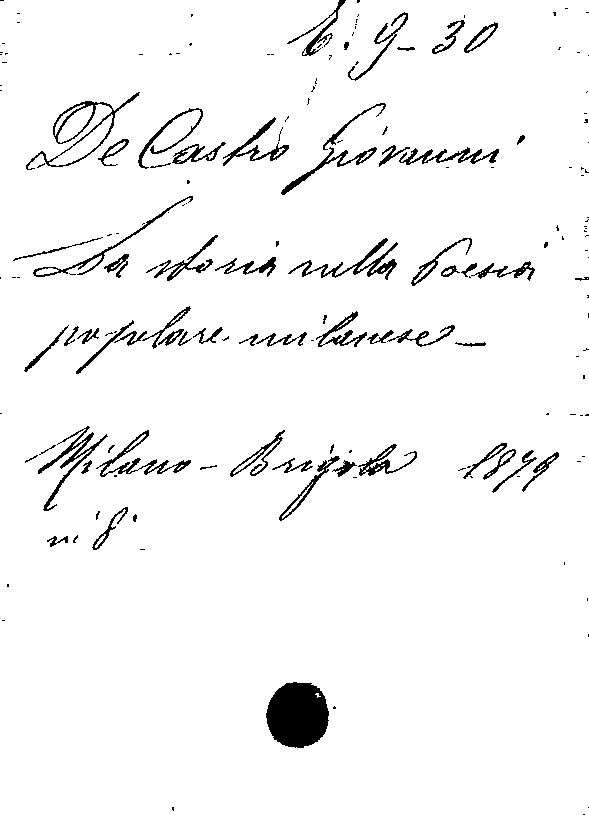 E. 9-30
De Castro Giovanni
La storia nella poesia
popolare milanese -
Milano - Brigola 1879
in 8°